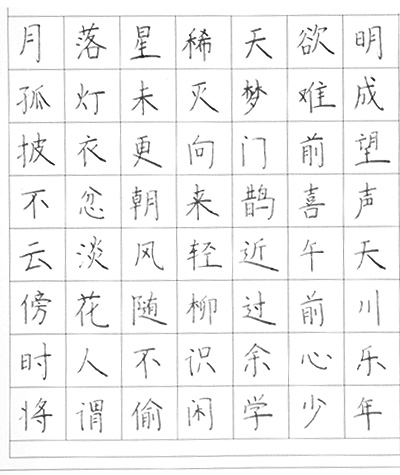 月落星稀天欲明
孤灯未灭梦难成
披衣更向门前望
不忿朝来鹊喜声
云淡风轻近午天
傍花随柳过前川
时人不识余心乐
将谓偷闲学少年